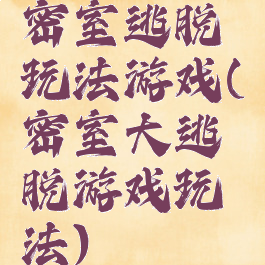 密室逃脱
玩法游戏(
密室大逃
脱游戏玩
法)